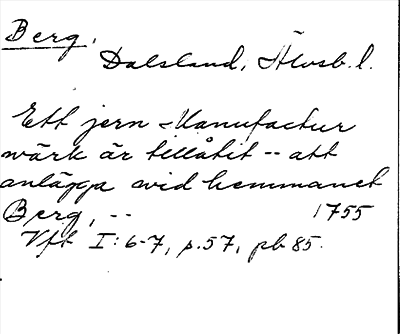 Berg,
Dalsland, Älvsb. l.
Ett jern-Manufactur
wärk är tillåtit -- att
anlägga wid hemmanet
Berg, -- 1755
Vft I: 6-7, p. 57, pb 85.